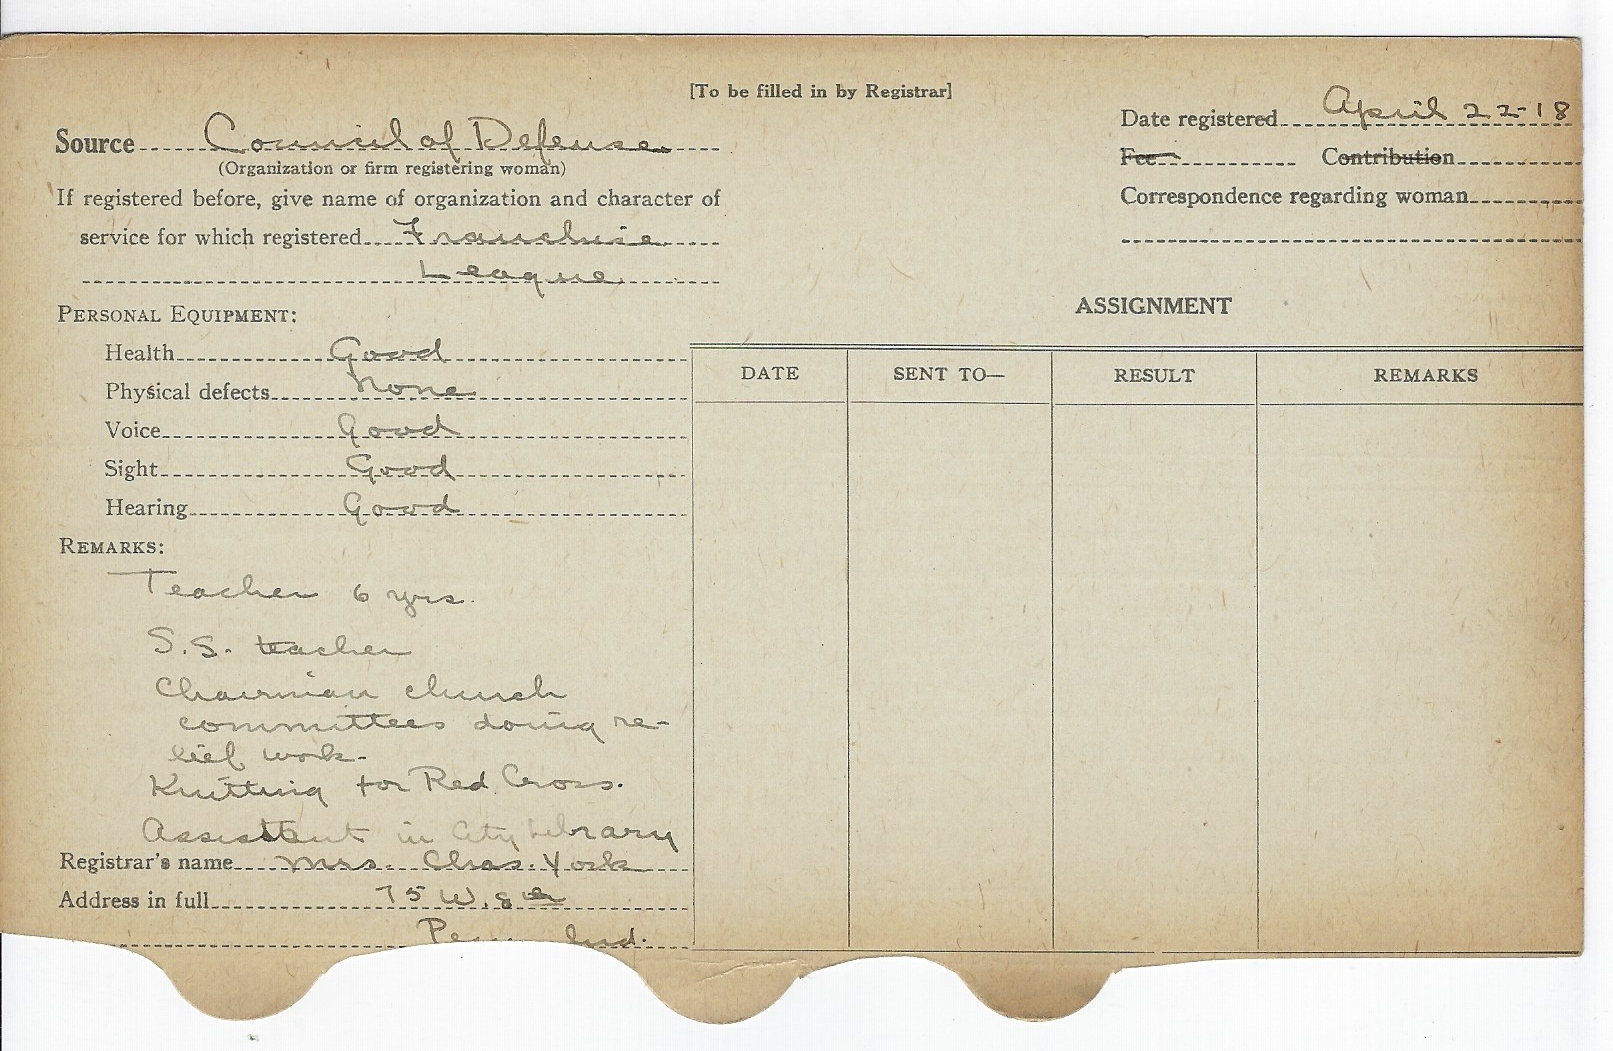 [To be filled in by Registrar]
Date registered April 22-18
Source Council of Defense.
(Organization or firm registering woman)
Fee Contribution
If registered before, give name of organization and character of
Correspondence regarding woman
service for which registered Franchise
League
ASSIGNMENT
PERSONAL EQUIPMENT:
Health Good
Physical defects None
Voice Good
Sight Good
Hearing Good
DATE SENT TO— RESULT REMARKS
REMARKS:
Teacher 6 yrs.
S.S. teacher
Chairman church
committees doing re-
lief work.
Knitting for Red Cross.
Assistant in City Library
Registrar's name Mrs. Chas. York
Address in full 75 W. 8th
Ind.